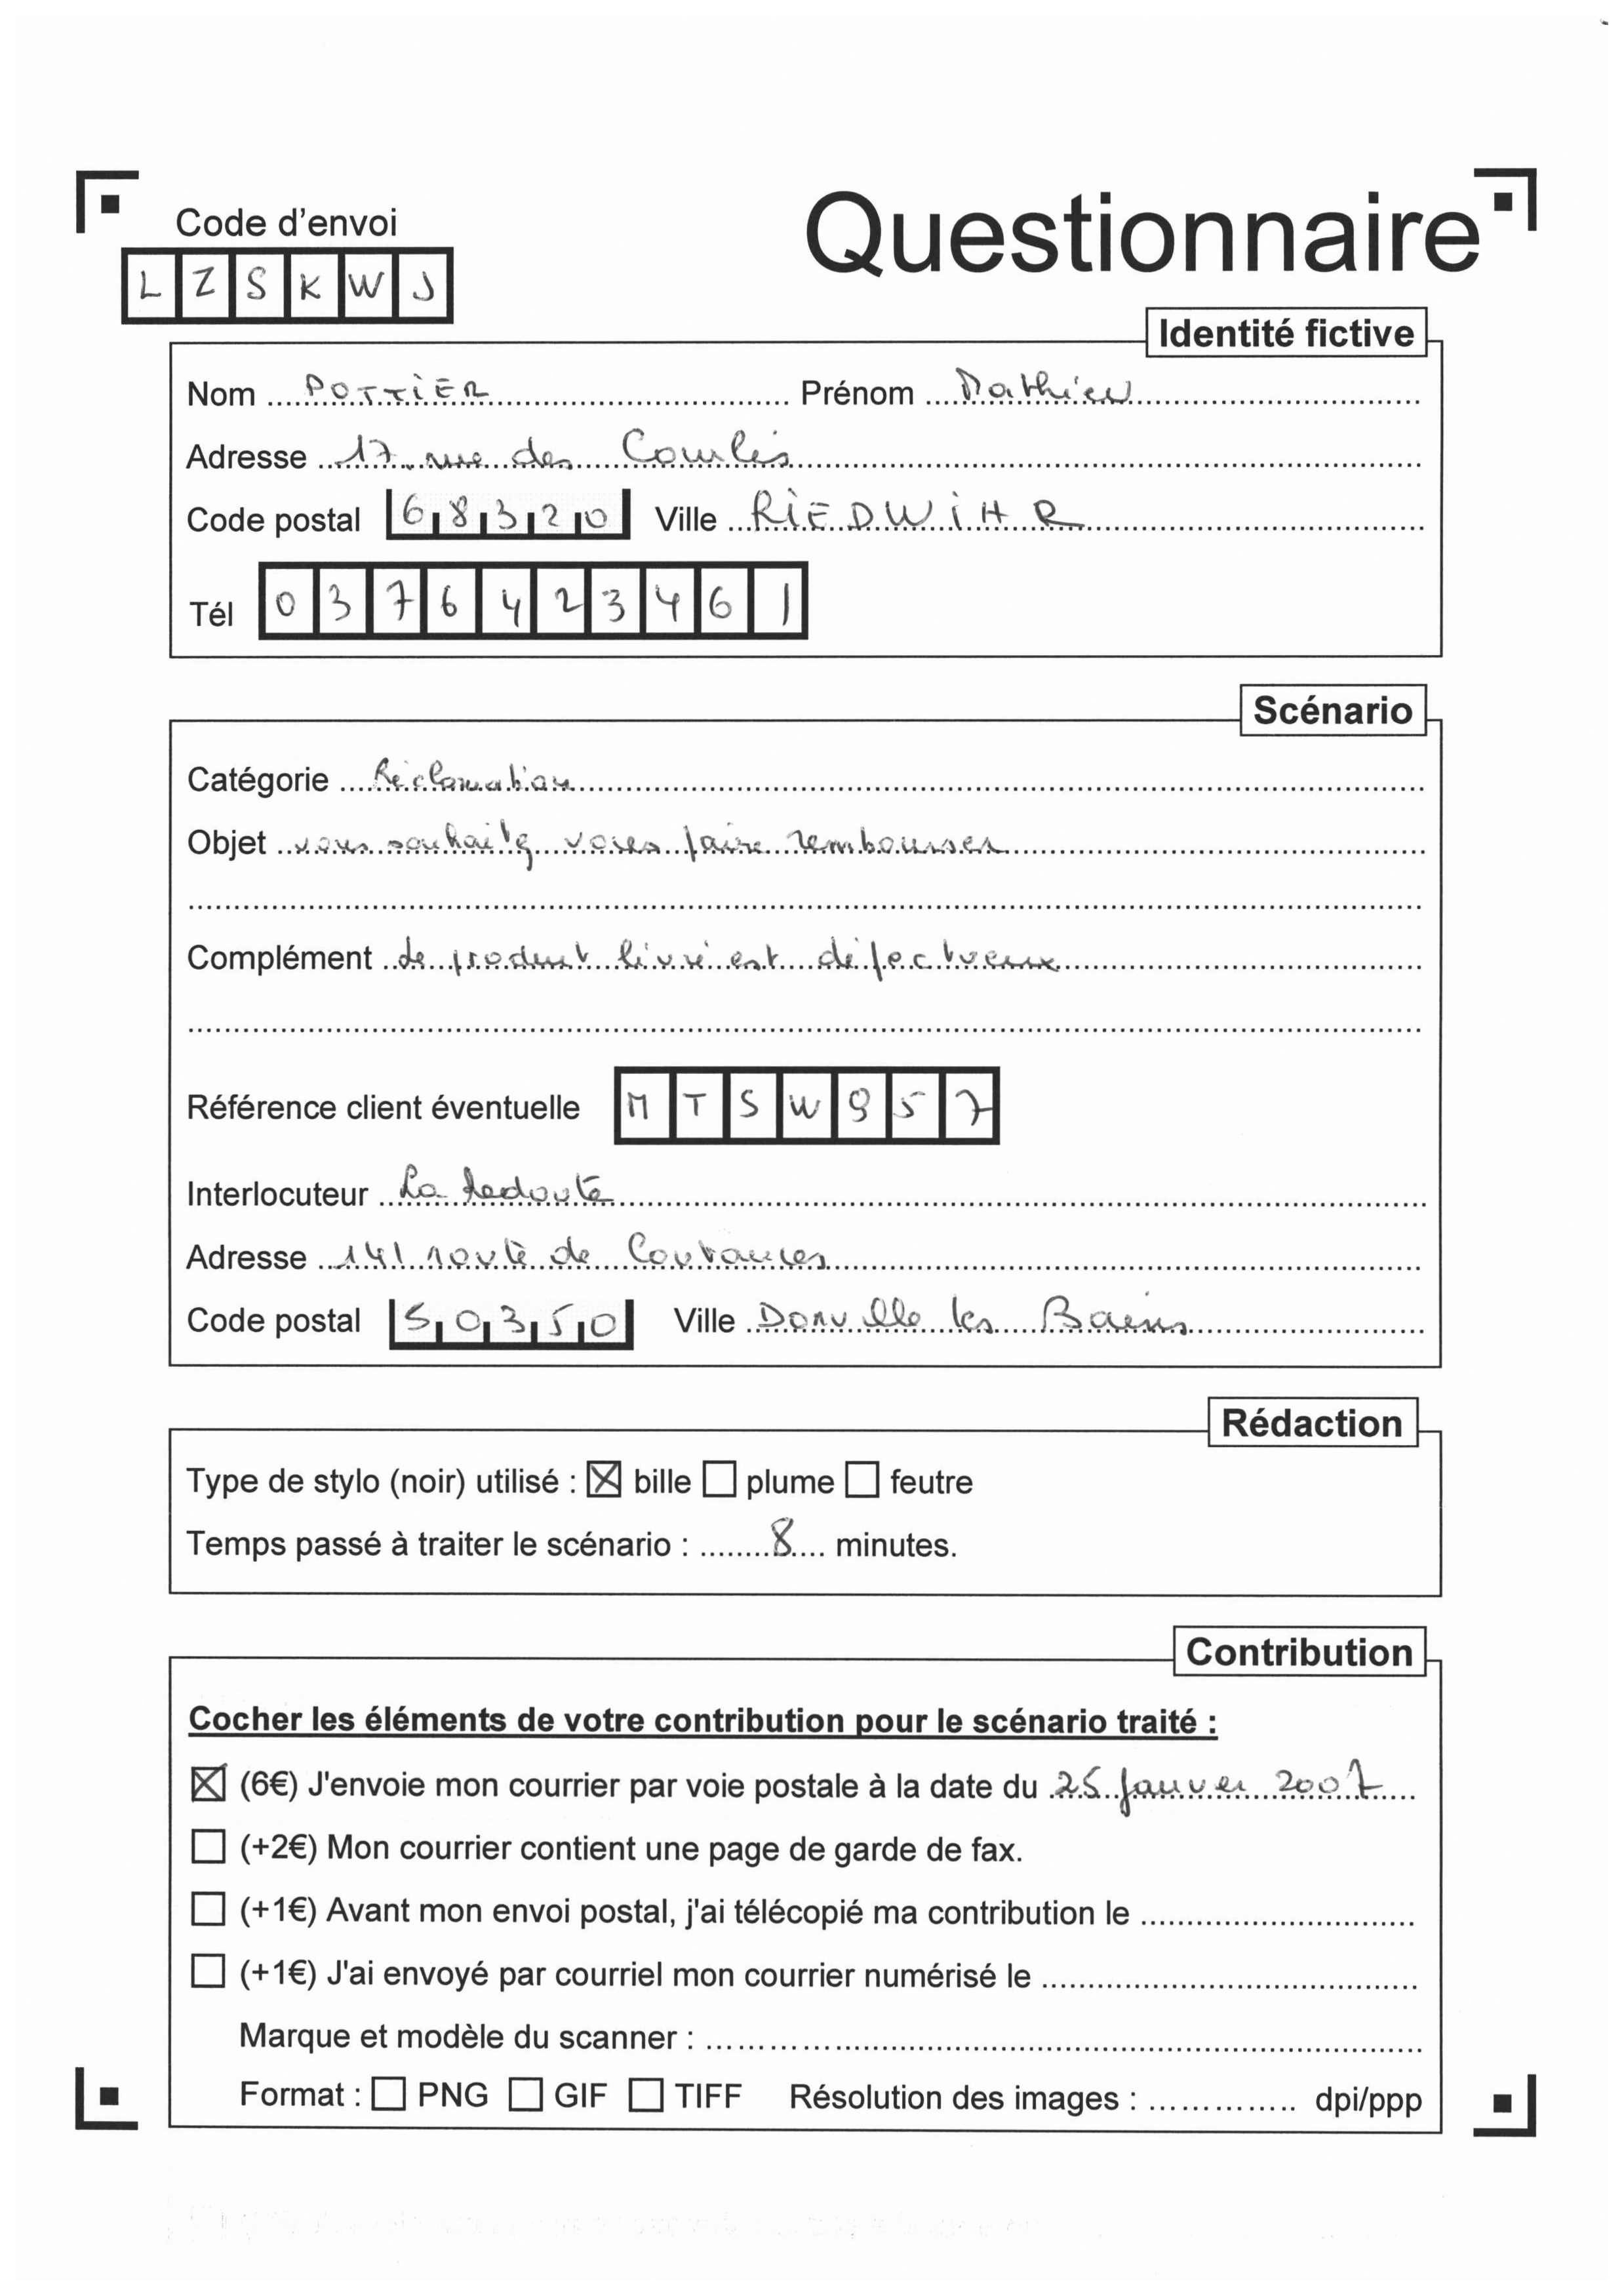 Code d'envoi
Questionnaire
L Z S K W J
Identité fictive
Nom POTTIER Prénom Mathieu
Adresse 17 rue des Courlis
Code postal 68320 Ville RIEDWIHR
Tél 0376423461
Scénario
Catégorie Réclamation
Objet vous souhaitez vous faire rembourser
Complément Le produit livré est défectueux
Référence client éventuelle MTSW957
Interlocuteur La Redoute
Adresse 141 route de Coutances
Code postal 50350 Ville Donville les Bains
Rédaction
Type de stylo (noir) utilisé : ☒ bille ☐ plume ☐ feutre
Temps passé à traiter le scénario : 8 minutes.
Contribution
Cocher les éléments de votre contribution pour le scénario traité :
☒ (6€) J'envoie mon courrier par voie postale à la date du 25 Janvier 2007
☐ (+2€) Mon courrier contient une page de garde de fax.
☐ (+1€) Avant mon envoi postal, j'ai télécopié ma contribution le
☐ (+1€) J'ai envoyé par courriel mon courrier numérisé le
Marque et modèle du scanner :
Format : ☐ PNG ☐ GIF ☐ TIFF Résolution des images : dpi/ppp